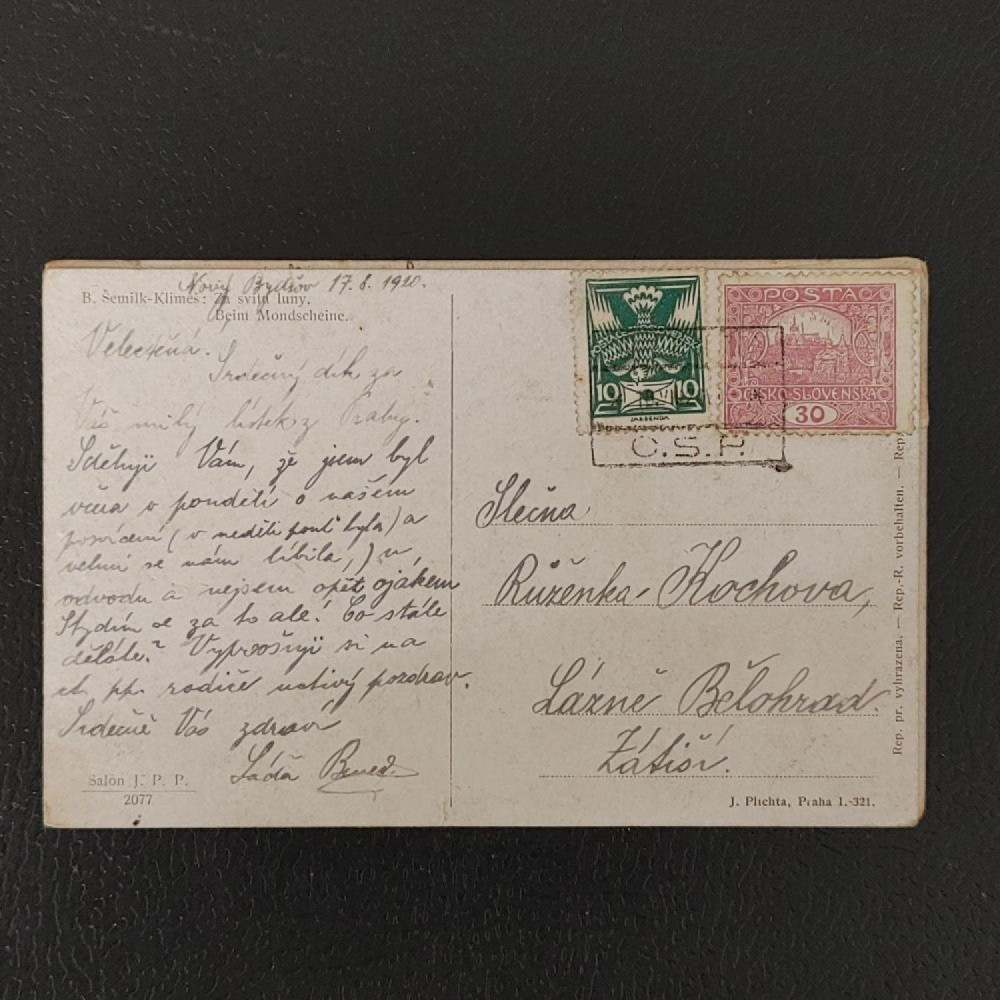 Nový Bydžov 17.8.1920.
B. Šemilk-Klimeš: Za svitu luny.
Beim Mondscheine.
Velectěná.
Srdečný dík za
Váš milý lístek z Prahy.
Sděluji Vám, že jsem byl
včera v pondělí o našem
posvícení (v neděli pouť byla) a
velmi se nám líbila,) u
odvodu a nejsem opět vojákem
Stydím se za to ale! Co stále
děláte? Vyprošuji si na
ct. pp. rodiče uctivý pozdrav.
Srdečně Vás zdraví
Láďa
Salon J. P. P.
2077
10 10
ČESKO-SLOVENSKÁ
POŠTA
ČESKO-SLOVENSKÁ
30
Č.S.P.
Slečna
Růženka Kochova,
Lázně Bělohrad.
Zátiší.
J. Plichta, Praha 1.-321.
Rep. pr. vyhrazena. — Rep.-R. vorbehalten. — Rep.